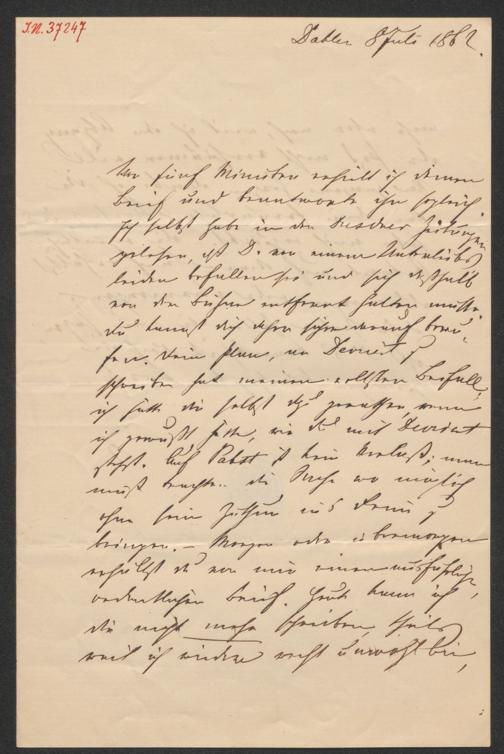 I.N. 37247
Dahlen 8 Juli 1862.
Vor fünf Minuten erhielt ich deinen
Brief und beantworte ihn sogleich.
Ich selbst habe in den Dresdner Zeitungen
gelesen, daß D. von einem Unterleibs
leiden befallen sei und sich deßhalb
von der Bühne entfernt halten müsse.
Du kannst dich daher sicher darauf beru-
fen. Dein Plan, an Devrient zu
schreiben hat meinen vollsten Beifall;
ich hätte dir selbst dazu gerathen, wenn
ich gewußt hätte, wie du mit Devrient
stehst. Auf Pabst ist kein Verlaß; man
muß trachten die Sache wo möglich
ohne sein Zuthun ins Reine zu
bringen. – Morgen oder übermorgen
erhältst du von mir einen ausführlichen,
ordentlichen Brief. Heute kann ich
dir nicht mehr schreiben, theils
weil ich wieder recht unwohl bin,